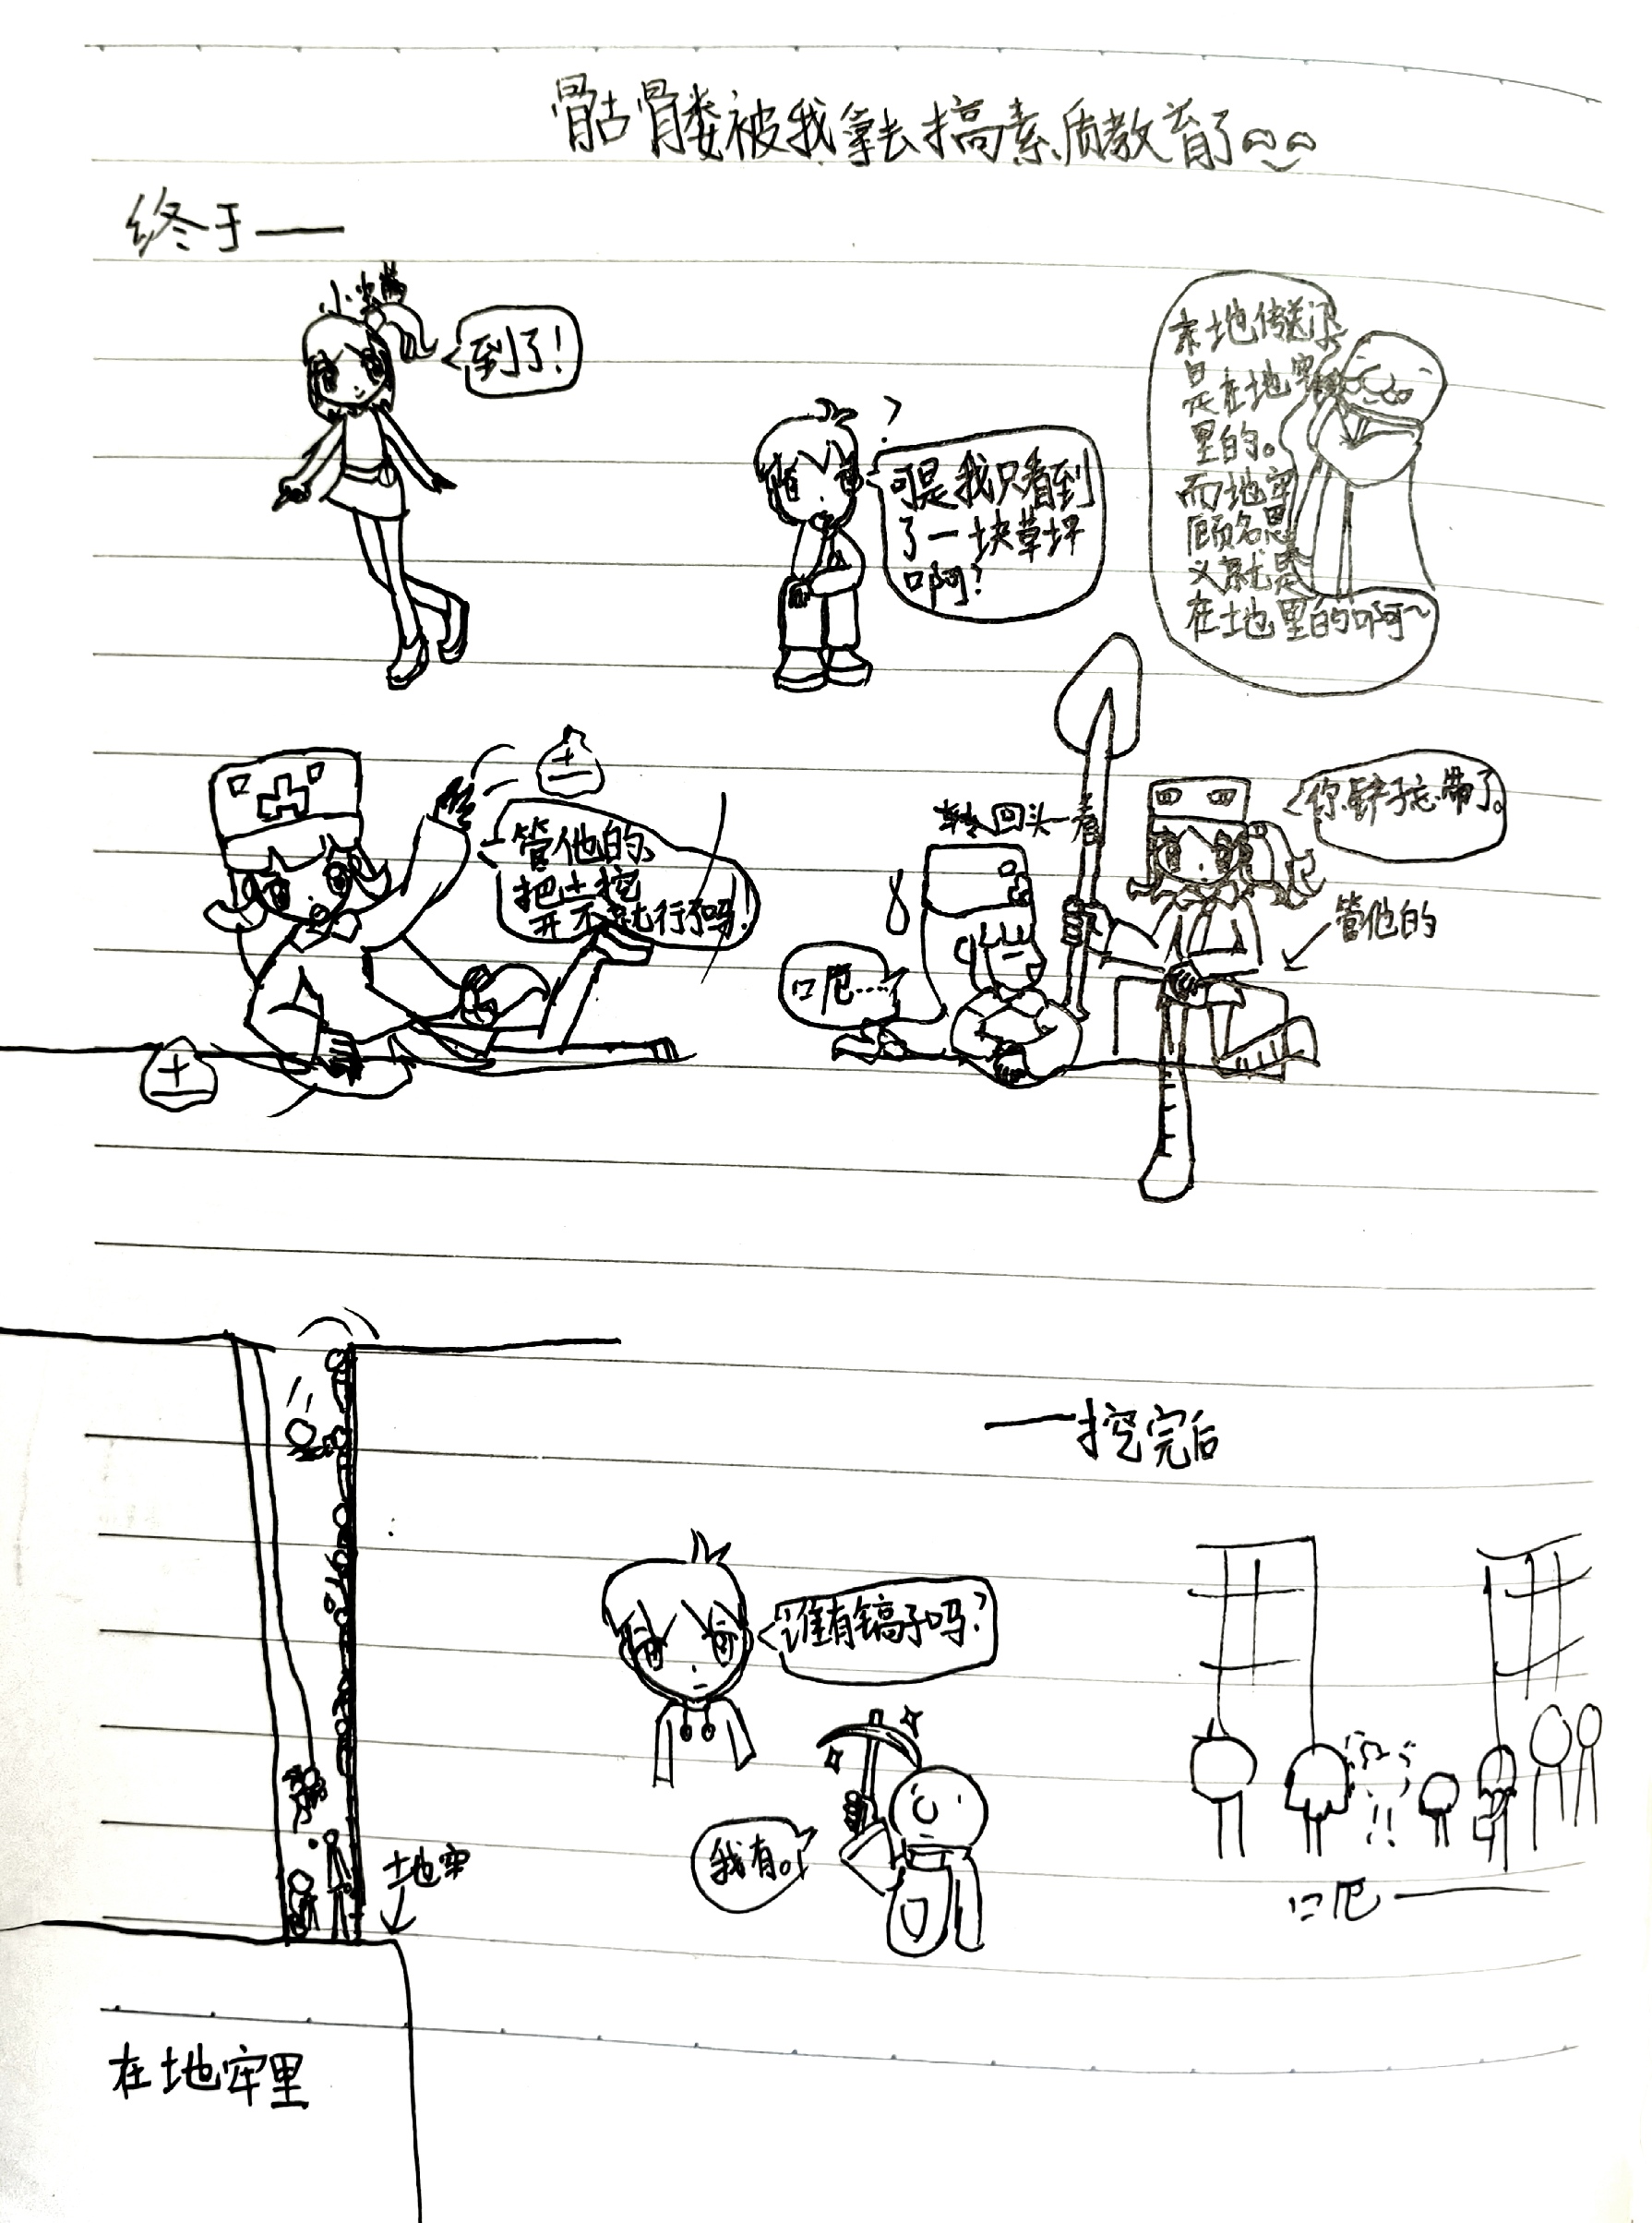 骷髅被我拿去搞素质教育了
终于——
到了！
？
可是我只看到
了一块草坪
啊？
末地传送门
是在地牢
里的。
而地牢
顾名思
义就是
在地里的啊～
土
管他的、
把土挖
开不就行了吗！
土
转回头一看
你铲子忘带了。
管他的
呃……
——挖完后
谁有镐子吗？
我有。
地牢
呃——
在地牢里